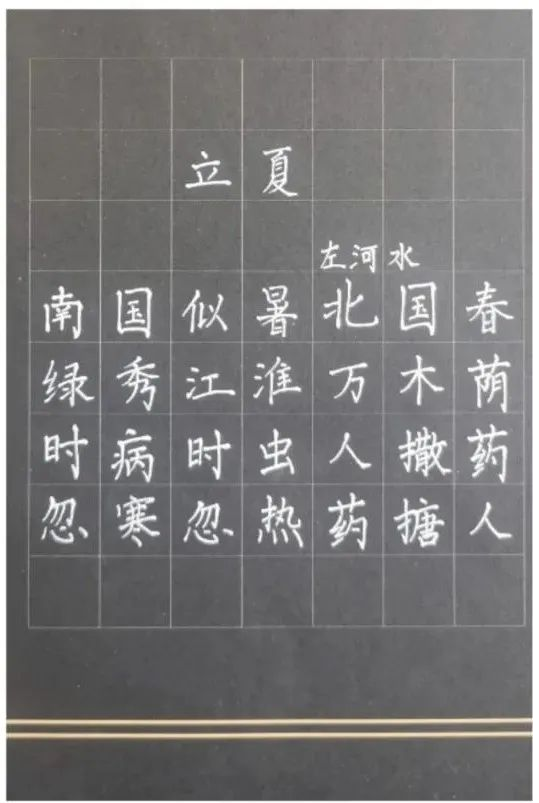 立夏
左河水
南国似暑北国春
绿秀江淮万木荫
时病时虫人撒药
忽寒忽热药搪人